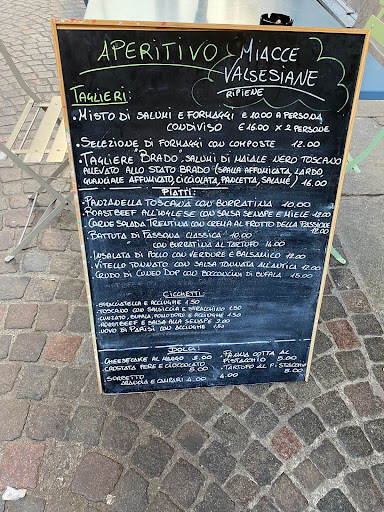 APERITIVO
MIACCE
VALSESIANE
RIPIENE
TAGLIERI:
• MISTO DI SALUMI E FORMAGGI € 10.00 A PERSONA
CONDIVISO € 16.00 x 2 PERSONE
• SELEZIONE DI FORMAGGI CON COMPOSTE 12.00
• TAGLIERE "BRADO" SALUMI DI MAIALE NERO TOSCANO
ALLEVATO ALLO STATO BRADO (SPALLA AFFUMICATA, LARDO
GUANCIALE AFFUMICATO, CICCIOLATA, PANCETTA, SALAME) 16.00
PIATTI:
• PANZANELLA TOSCANA CON BURRATINA 10.00
• ROASTBEEF ALL'INGLESE CON SALSA SENAPE E MIELE 12.00
• CARNE SALADA TRENTINA CON CREMA AL FRUTTO DELLA PASSIONE
12.00
• BATTUTA DI FASSONA CLASSICA 10.00
" " CON BURRATINA AL TARTUFO 14.00
• INSALATA DI POLLO CON VERDURE E BALSAMICO 12.00
• VITELLO TONNATO CON SALSA TONNATA ALL'ANTICA 12.00
• CRUDO DI CUNEO DOP CON BOCCONCINI DI BUFALA 15.00
CICCHETTI:
• STRACCIATELLA E ACCIUGHE 1.50
• TOSCANO CON SALSICCIA E STRACCHINO 1.50
• BUFALA, POMODORO E ACCIUGHE 1.50
• ROASTBEEF E SALSA ALLA SENAPE 2.00
• UOVO DI PARISI CON ACCIUGHE 1.50
DOLCI:
• CHEESECAKE AL MANGO 5.00
• CROSTATA PERE E CIOCCOLATO
5.00
• SORBETTO
ARANCIA E CAMPARI 4.00
• PANNA COTTA AL
PISTACCHIO 5.00
• TARTUFO AL PISTACCHIO
5.00
4.00